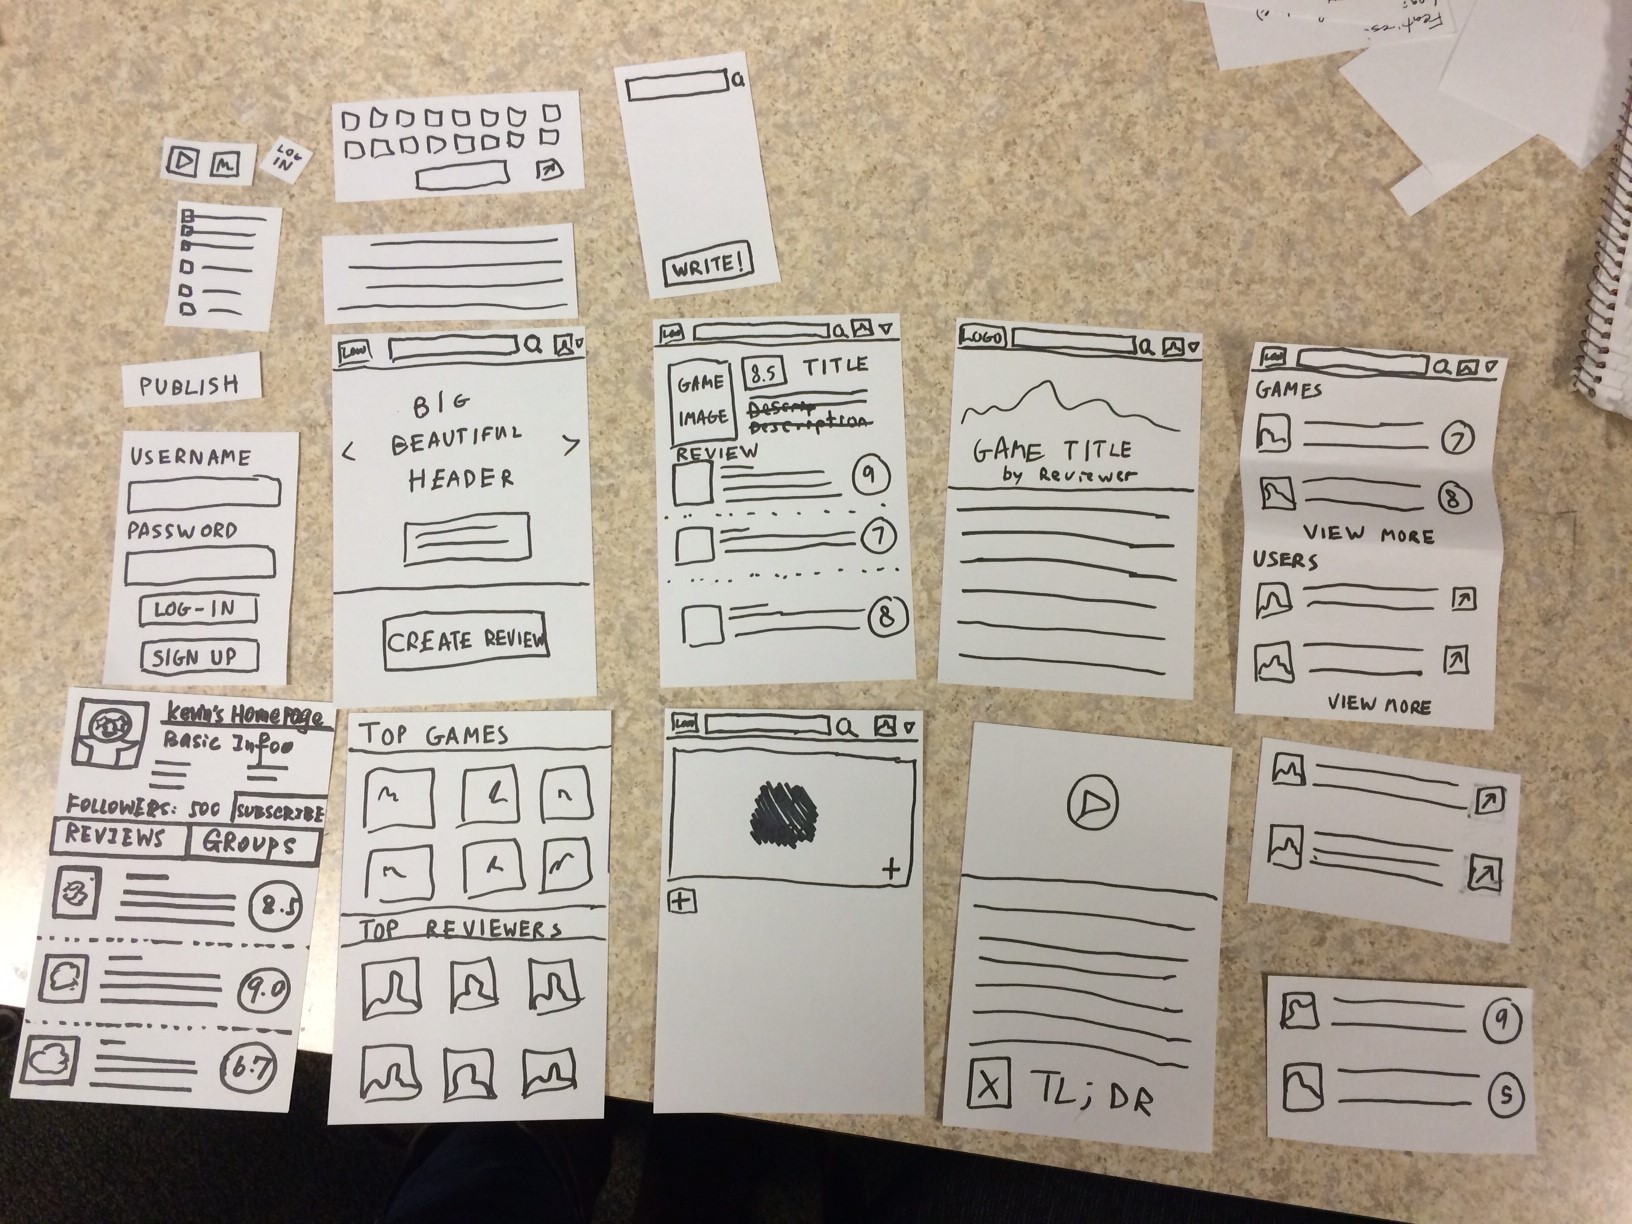 Features:
LOG
IN
WRITE!
PUBLISH
USERNAME
PASSWORD
LOG-IN
SIGN UP
BIG
BEAUTIFUL
HEADER
CREATE REVIEW
GAME
IMAGE
8.5
TITLE
Descrip
Description
REVIEW
9
7
8
LOGO
GAME TITLE
by Reviewer
GAMES
7
8
VIEW MORE
USERS
VIEW MORE
Kevin's HomePage
Basic Infoo
FOLLOWERS: 500
SUBSCRIBE
REVIEWS
GROUPS
8.5
9.0
6.7
TOP GAMES
TOP REVIEWERS
X TL;DR
9
5